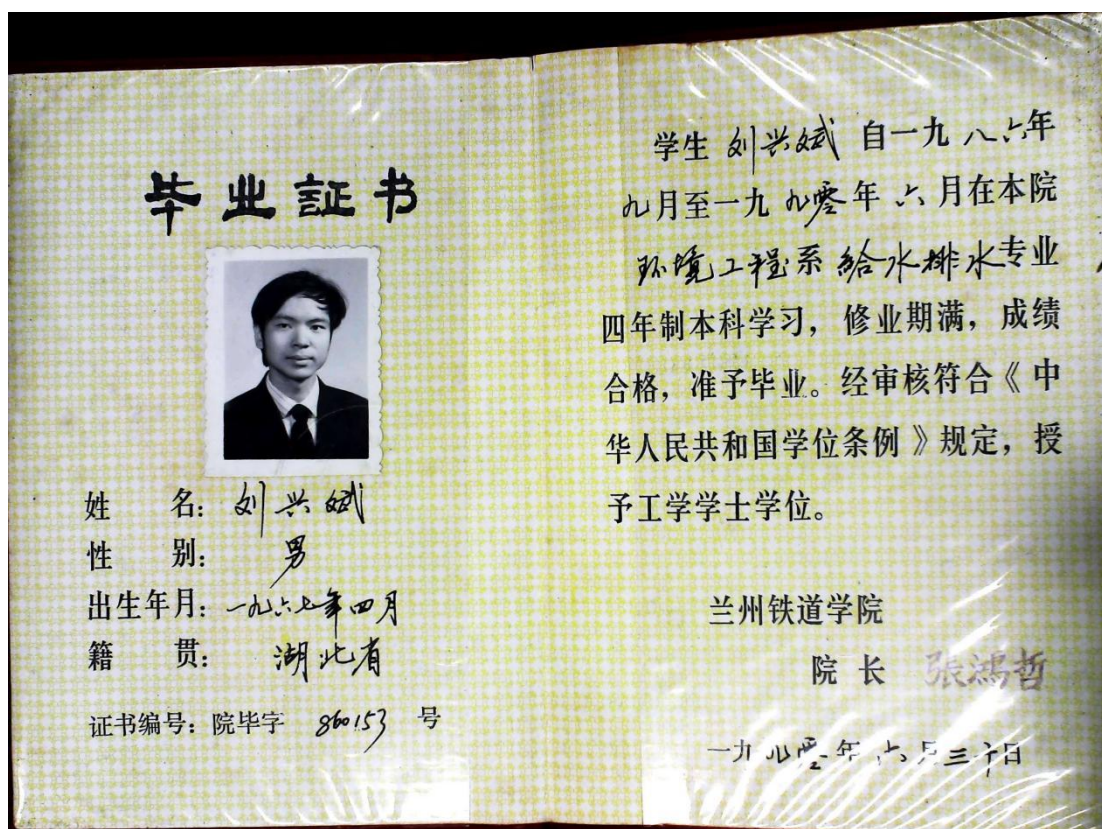 毕业証书
姓 名：刘兴斌
性 别：男
出生年月：一九六七年四月
籍 贯：湖北省
证书编号：院毕字 860153 号
学生 刘兴斌 自一九八六年
九月至一九九零年六月在本院
环境工程系給水排水专业
四年制本科学习，修业期满，成绩
合格，准予毕业。经审核符合《中
华人民共和国学位条例》规定，授
予工学学士学位。
兰州铁道学院
院 长 張鴻哲
一九九零年六月三十日